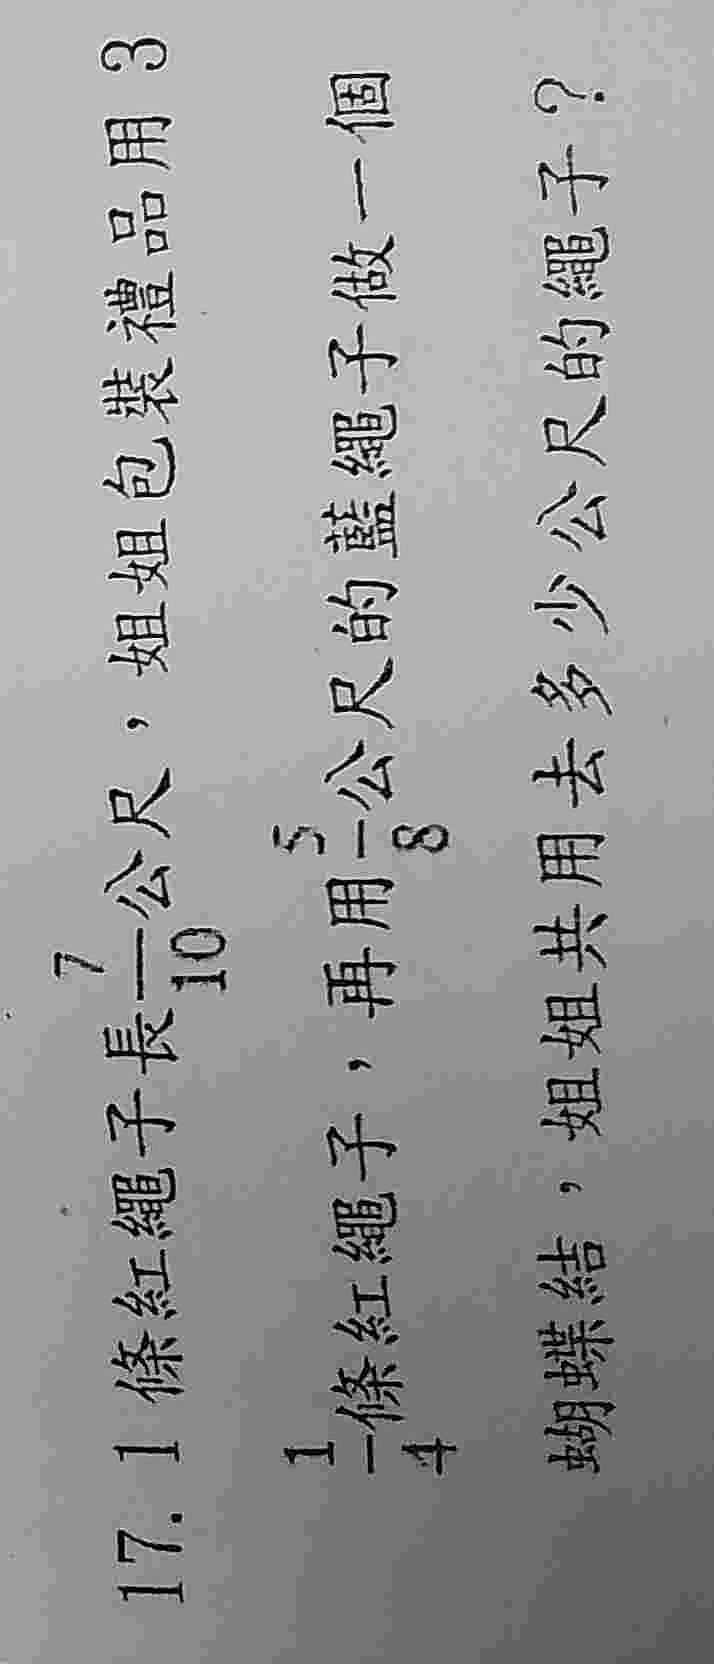 17. 1條紅繩子長7/10公尺，姐姐包裝禮品用3
1/4條紅繩子，再用5/8公尺的藍繩子做一個
蝴蝶結，姐姐共用去多少公尺的繩子？